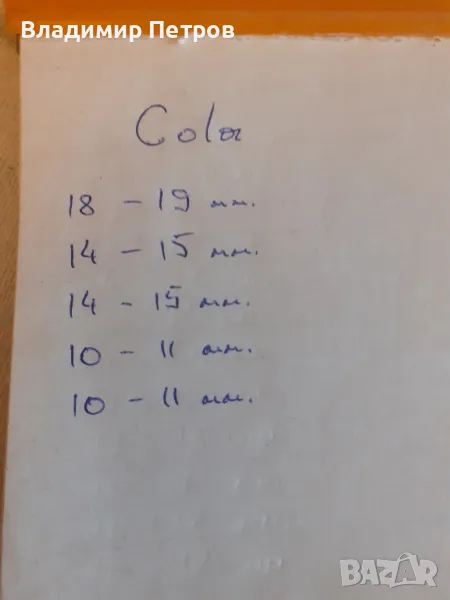 Владимир Петров
Color
18 - 19 мм.
14 - 15 мм.
14 - 15 мм.
10 - 11 мм.
10 - 11 мм.
BAZAR